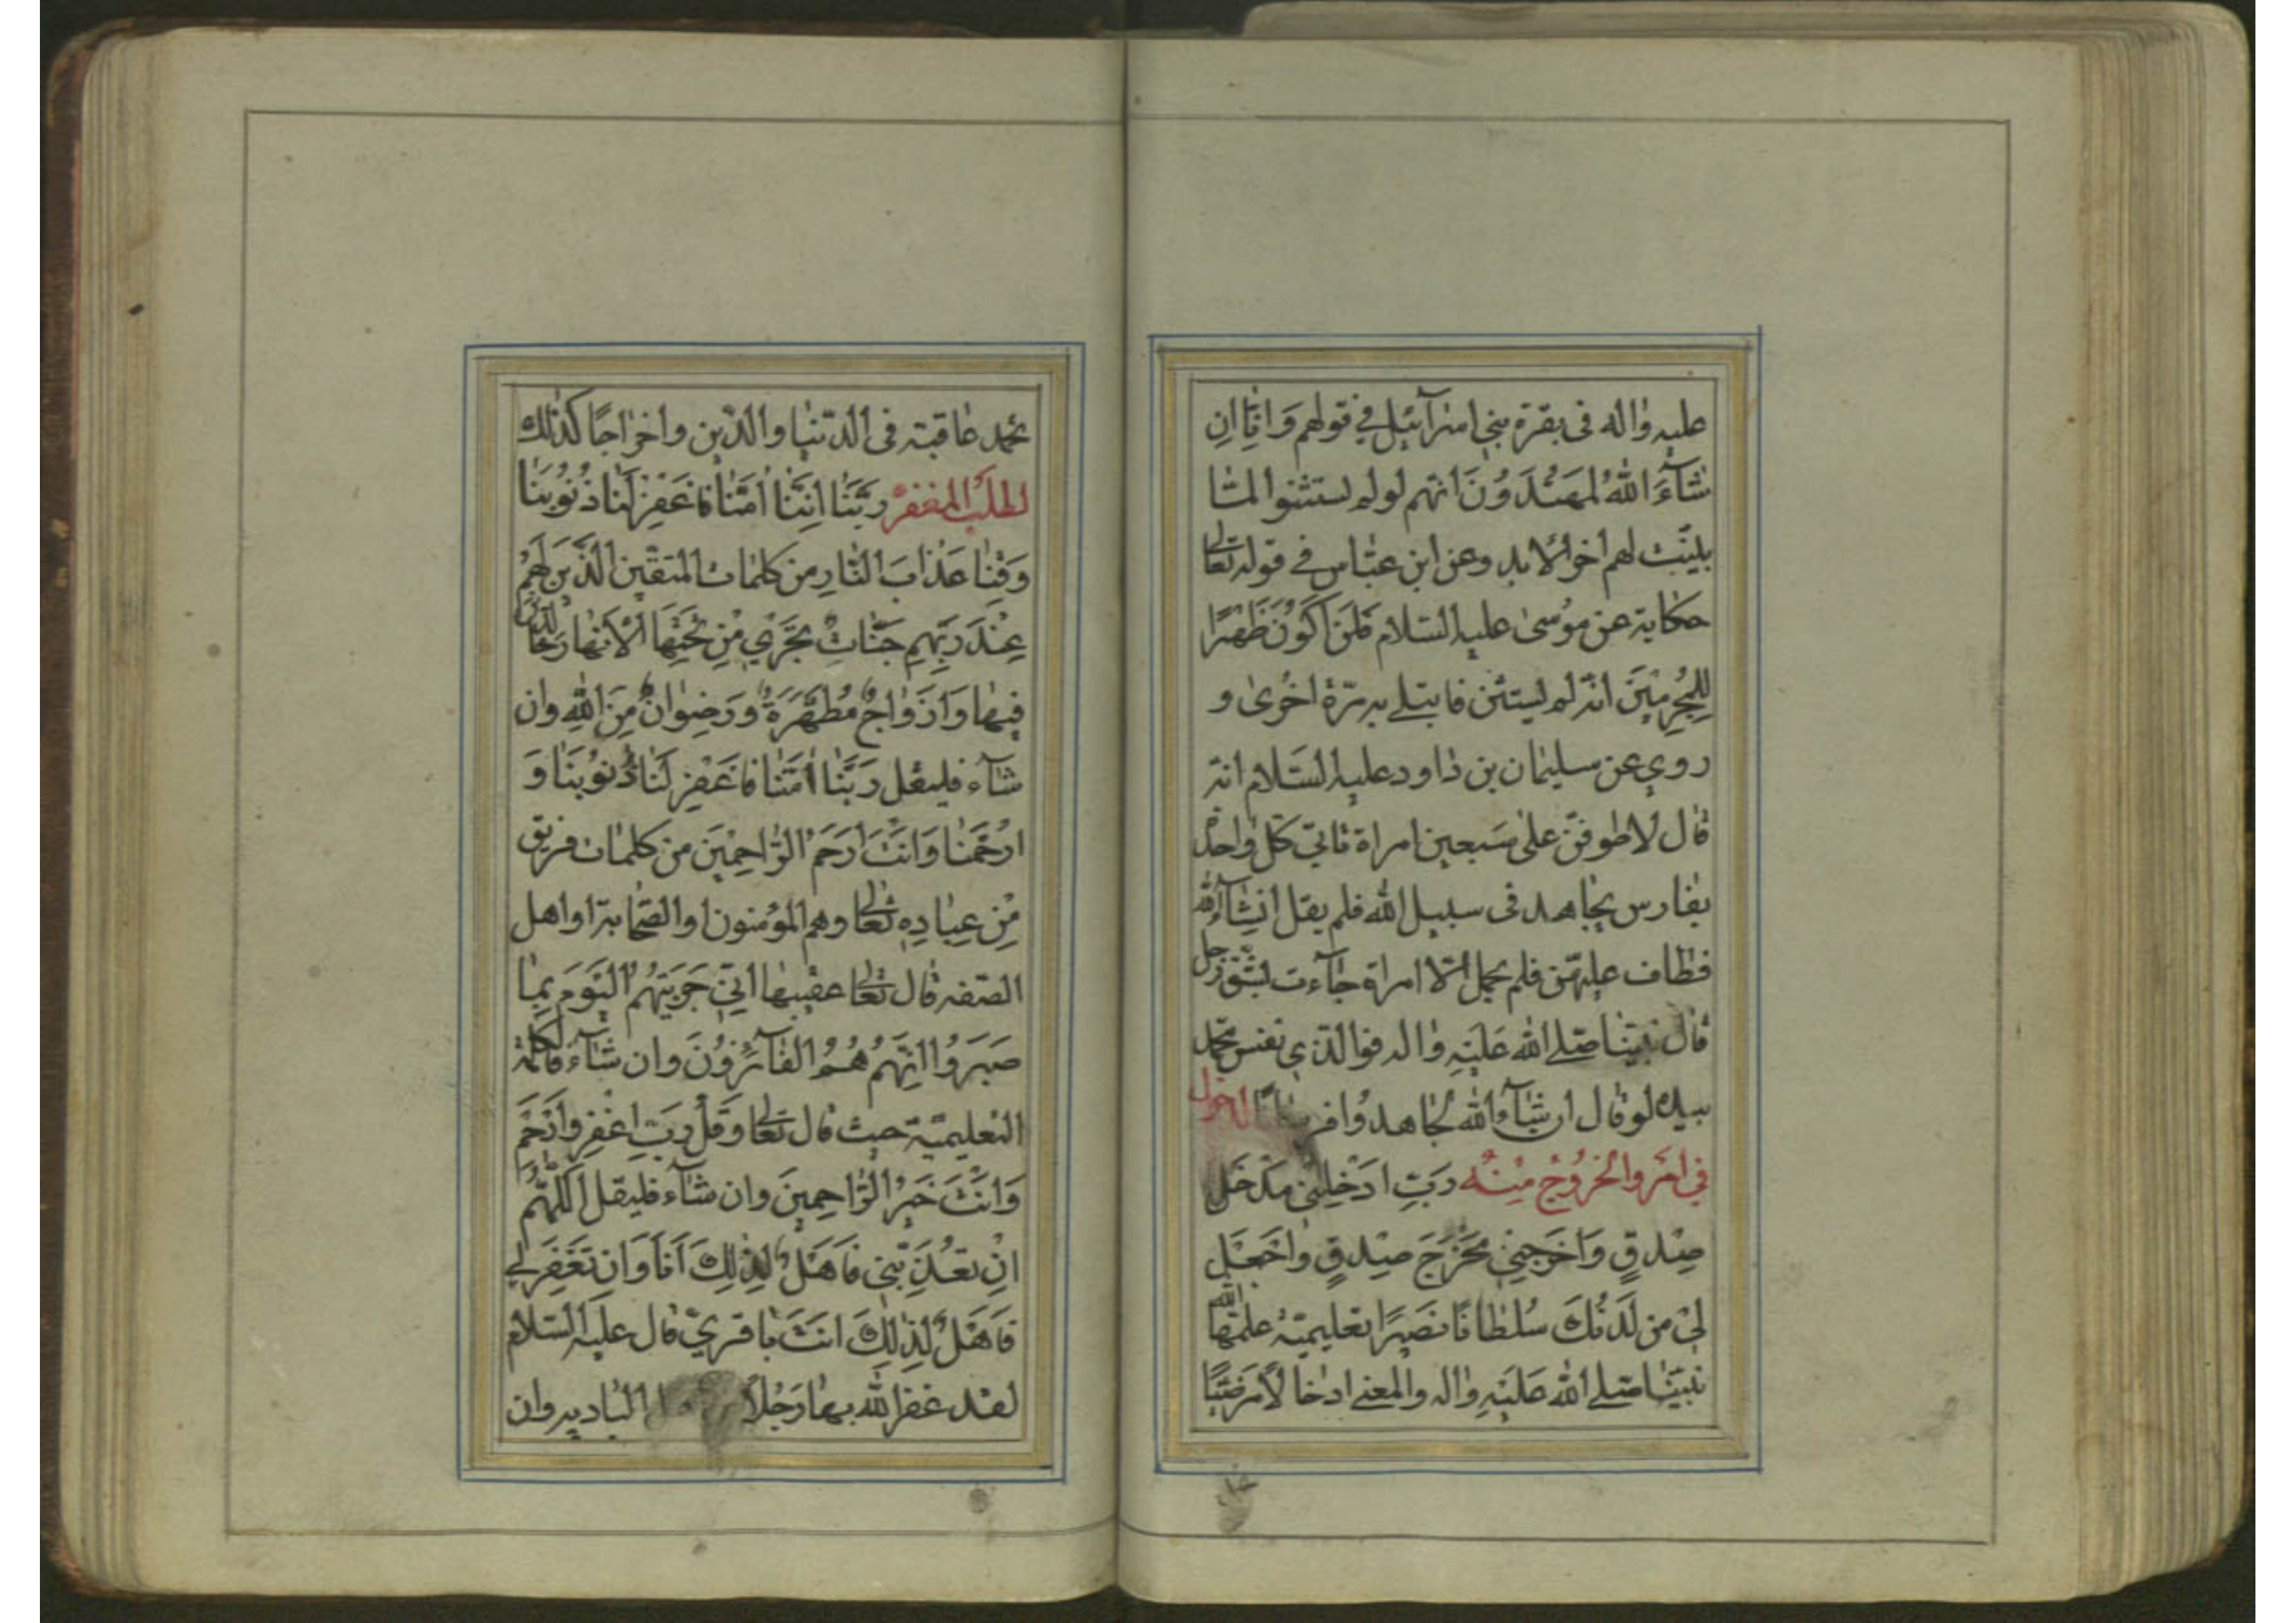 عليه واله فى بقرة بنى اسرآئيل فى قولهم وَاِنّا اِن
شآءَ اللهُ لمهتَدُونَ انّهم لو لم يستثنوا لمّا
بليّنت لهم اخر الابد وعن ابن عبّاس فى قوله تعالى
حكاية عن موُسىٰ عليه السّلام فَلَنْ اَكُونَ ظَهيرًا
لِلمُجْرِمينَ انّه لم يستثن فابتلى به مرّة اخرىٰ و
روى عن سليمان بن داود عليه السّلام انّه
قال لاطوفنّ علىٰ سَبعين امراة تاتى كل واحدة
بفارس يجاهد فى سبيل الله فلم يقل انشآء الله
فطاف عليهنّ فلم يحمل الّا امراة جآءت بشق رجل
قال نبيّنا صلى الله عَليَهِ واله فوالذى نفس محمّد
بيده لو قال ان شآء الله لجاهدوا فرسانًا لدخول
فى امر والخروُج مِنْه رَبِّ ادْخِلنِى مدْخَلَ
صِدقٍ وَاخرِجنِى مُخْرَجَ صِدقٍ وَاجْعَل
لى من لَدنْكَ سُلطانًا نصَيرًا تعليميّة علمها الله
نبيّنا صلى الله عَليَهِ واله والمعنى ادخالا مرضيّا
يحمد عاقبته فى الدّنيا والدّين واخراجًا كذلك
لطلب المغفرة رَبَّنَا اِنَّنَا اٰمَنّا فَاغْفِرْ لَنَا ذُنُوبَنَا
وَقِنا عَذابَ النّارِ من كلمات المتقين الذّينَ لَهُمْ
عِنْدَ رَبِّهِم جَنّاتٌ تَجْرى مِنْ تَحْتِهَا الْاَنهارُ خالدين
فيها وَاَزْواجٌ مُطَهَّرَةٌ وَرَضِوانٌ مِنَ اللهِ وان
شآء فليقل رَبَّنا اٰمَنّا فَاغْفِر لَنَا ذُنُوبَنا وَ
ارْحَمْنا وَانْتَ اَرحَمُ الرّاحِمْينَ من كلمات فريق
مِنْ عِبادِهِ تعالى وهم المؤمنون او الصّحابة او اهل
الصّفه قال تعالى عقيبها اِنّى جَزَيتهُمُ اليَوْمَ بِما
صَبَرُوا اِنَّهُمْ هُمُ الفآئزُونَ وان شآء فالكلمة
التعليميّة حيث قال تعالى وَقُلْ رَبِّ اغْفِر وَارْحَمْ
وَانْتَ خَيرُ الرّاحِمينَ وان شآء فليقل اَللّهُمَّ
اِنْ تعَذِّبْنى فَاَهْلٌ لِذلِكَ اَنَا وَاِن تَغْفِر لى
فَاَهْلٌ لِذلِكَ انتَ فَاقرىّ قال عليه السّلام
لقد غفر الله بها رَجُلاً اهل البادية وان